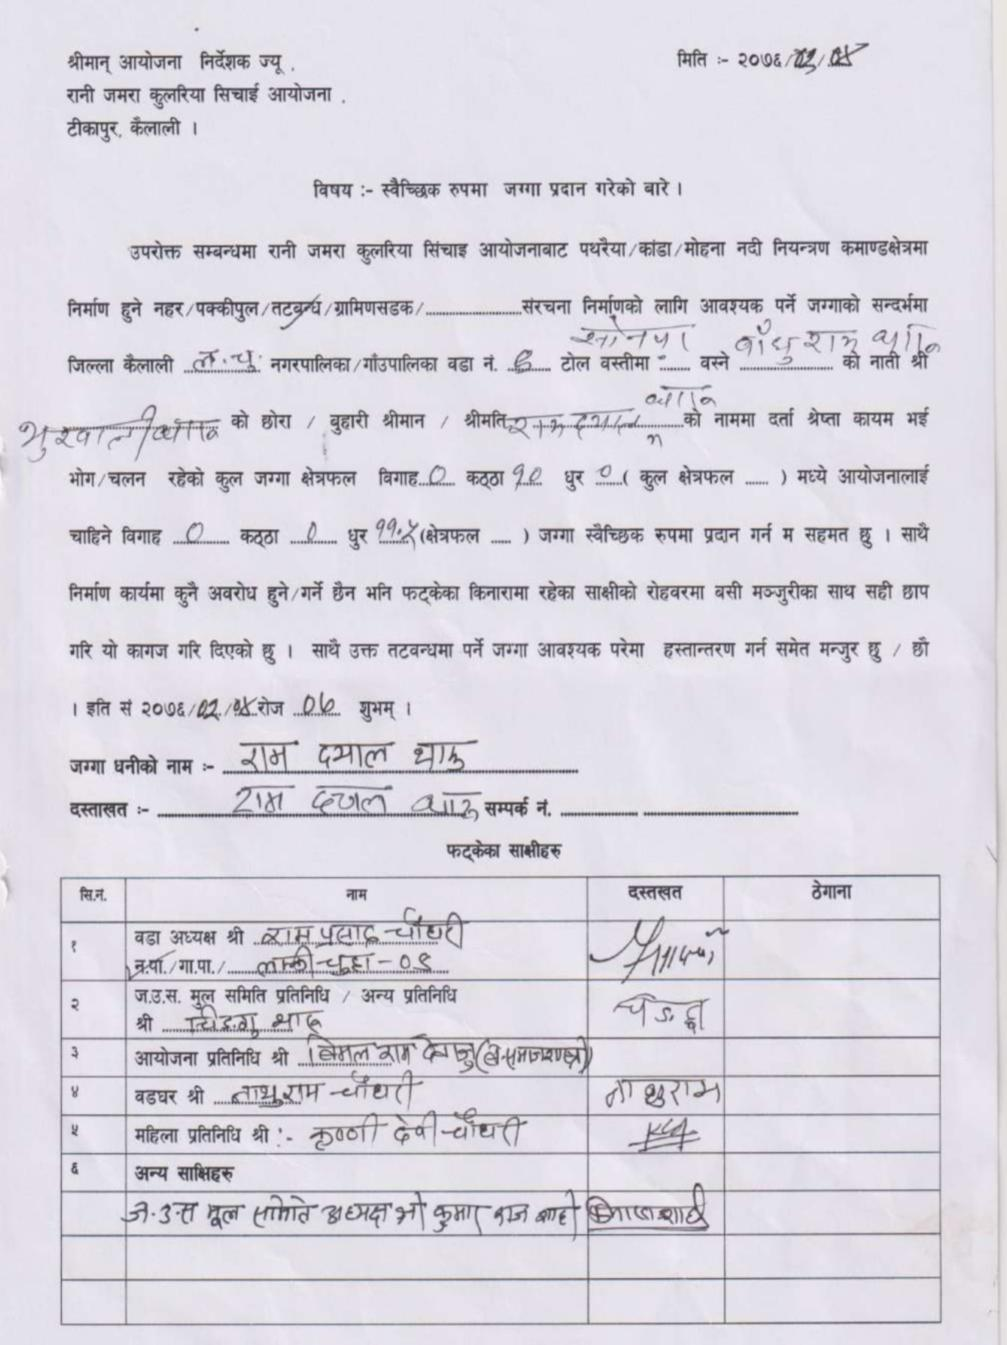 श्रीमान् आयोजना निर्देशक ज्यू .
मिति :- २०७६/02/04
रानी जमरा कुलरिया सिचाई आयोजना .
टीकापुर, कैलाली ।
विषय :- स्वैच्छिक रुपमा जग्गा प्रदान गरेको बारे ।
उपरोक्त सम्बन्धमा रानी जमरा कुलरिया सिंचाइ आयोजनाबाट पथरैया/कांडा/मोहना नदी नियन्त्रण कमाण्डक्षेत्रमा
निर्माण हुने नहर/पक्कीपुल/तटबन्ध/ग्रामिणसडक/........................संरचना निर्माणको लागि आवश्यक पर्ने जग्गाको सन्दर्भमा
जिल्ला कैलाली ल.चु. नगरपालिका/गाँउपालिका वडा नं. ........ टोल वस्तीमा ........ वस्ने राम को नाती श्री
को छोरा / बुहारी श्रीमान / श्रीमति राम दयाल को नाममा दर्ता श्रेष्ता कायम भई
भोग/चलन रहेको कुल जग्गा क्षेत्रफल विगाह 0 कठ्ठा १० धुर 0 ( कुल क्षेत्रफल ...... ) मध्ये आयोजनालाई
चाहिने विगाह 0 कठ्ठा 0 धुर ११.५ (क्षेत्रफल ..... ) जग्गा स्वैच्छिक रुपमा प्रदान गर्न म सहमत छु । साथै
निर्माण कार्यमा कुनै अवरोध हुने/गर्ने छैन भनि फट्केका किनारामा रहेका साक्षीको रोहवरमा बसी मञ्जुरीका साथ सही छाप
गरि यो कागज गरि दिएको छु । साथै उक्त तटवन्धमा पर्ने जग्गा आवश्यक परेमा हस्तान्तरण गर्न समेत मन्जुर छु / छौ
। इति सं २०७६/02/04 रोज 06 शुभम् ।
जग्गा धनीको नाम :- राम दयाल थारु
दस्ताखत :- राम दयाल थारु सम्पर्क नं. .................. ....................................
फट्केका साक्षीहरु
सि.नं. नाम दस्तखत ठेगाना
१ वडा अध्यक्ष श्री राम प्रसाद चौधरी
न.पा./गा.पा./ लम्की चुहा - ०९
२ ज.उ.स. मुल समिति प्रतिनिधि / अन्य प्रतिनिधि
श्री
३ आयोजना प्रतिनिधि श्री बिमल राम
४ वडघर श्री नाथुराम चौधरी नाथुराम
५ महिला प्रतिनिधि श्री :- कृष्णी देवी चौधरी
६ अन्य साक्षिहरु
ज.उ.स मूल समिति अध्यक्ष श्री कुमार राज शाही